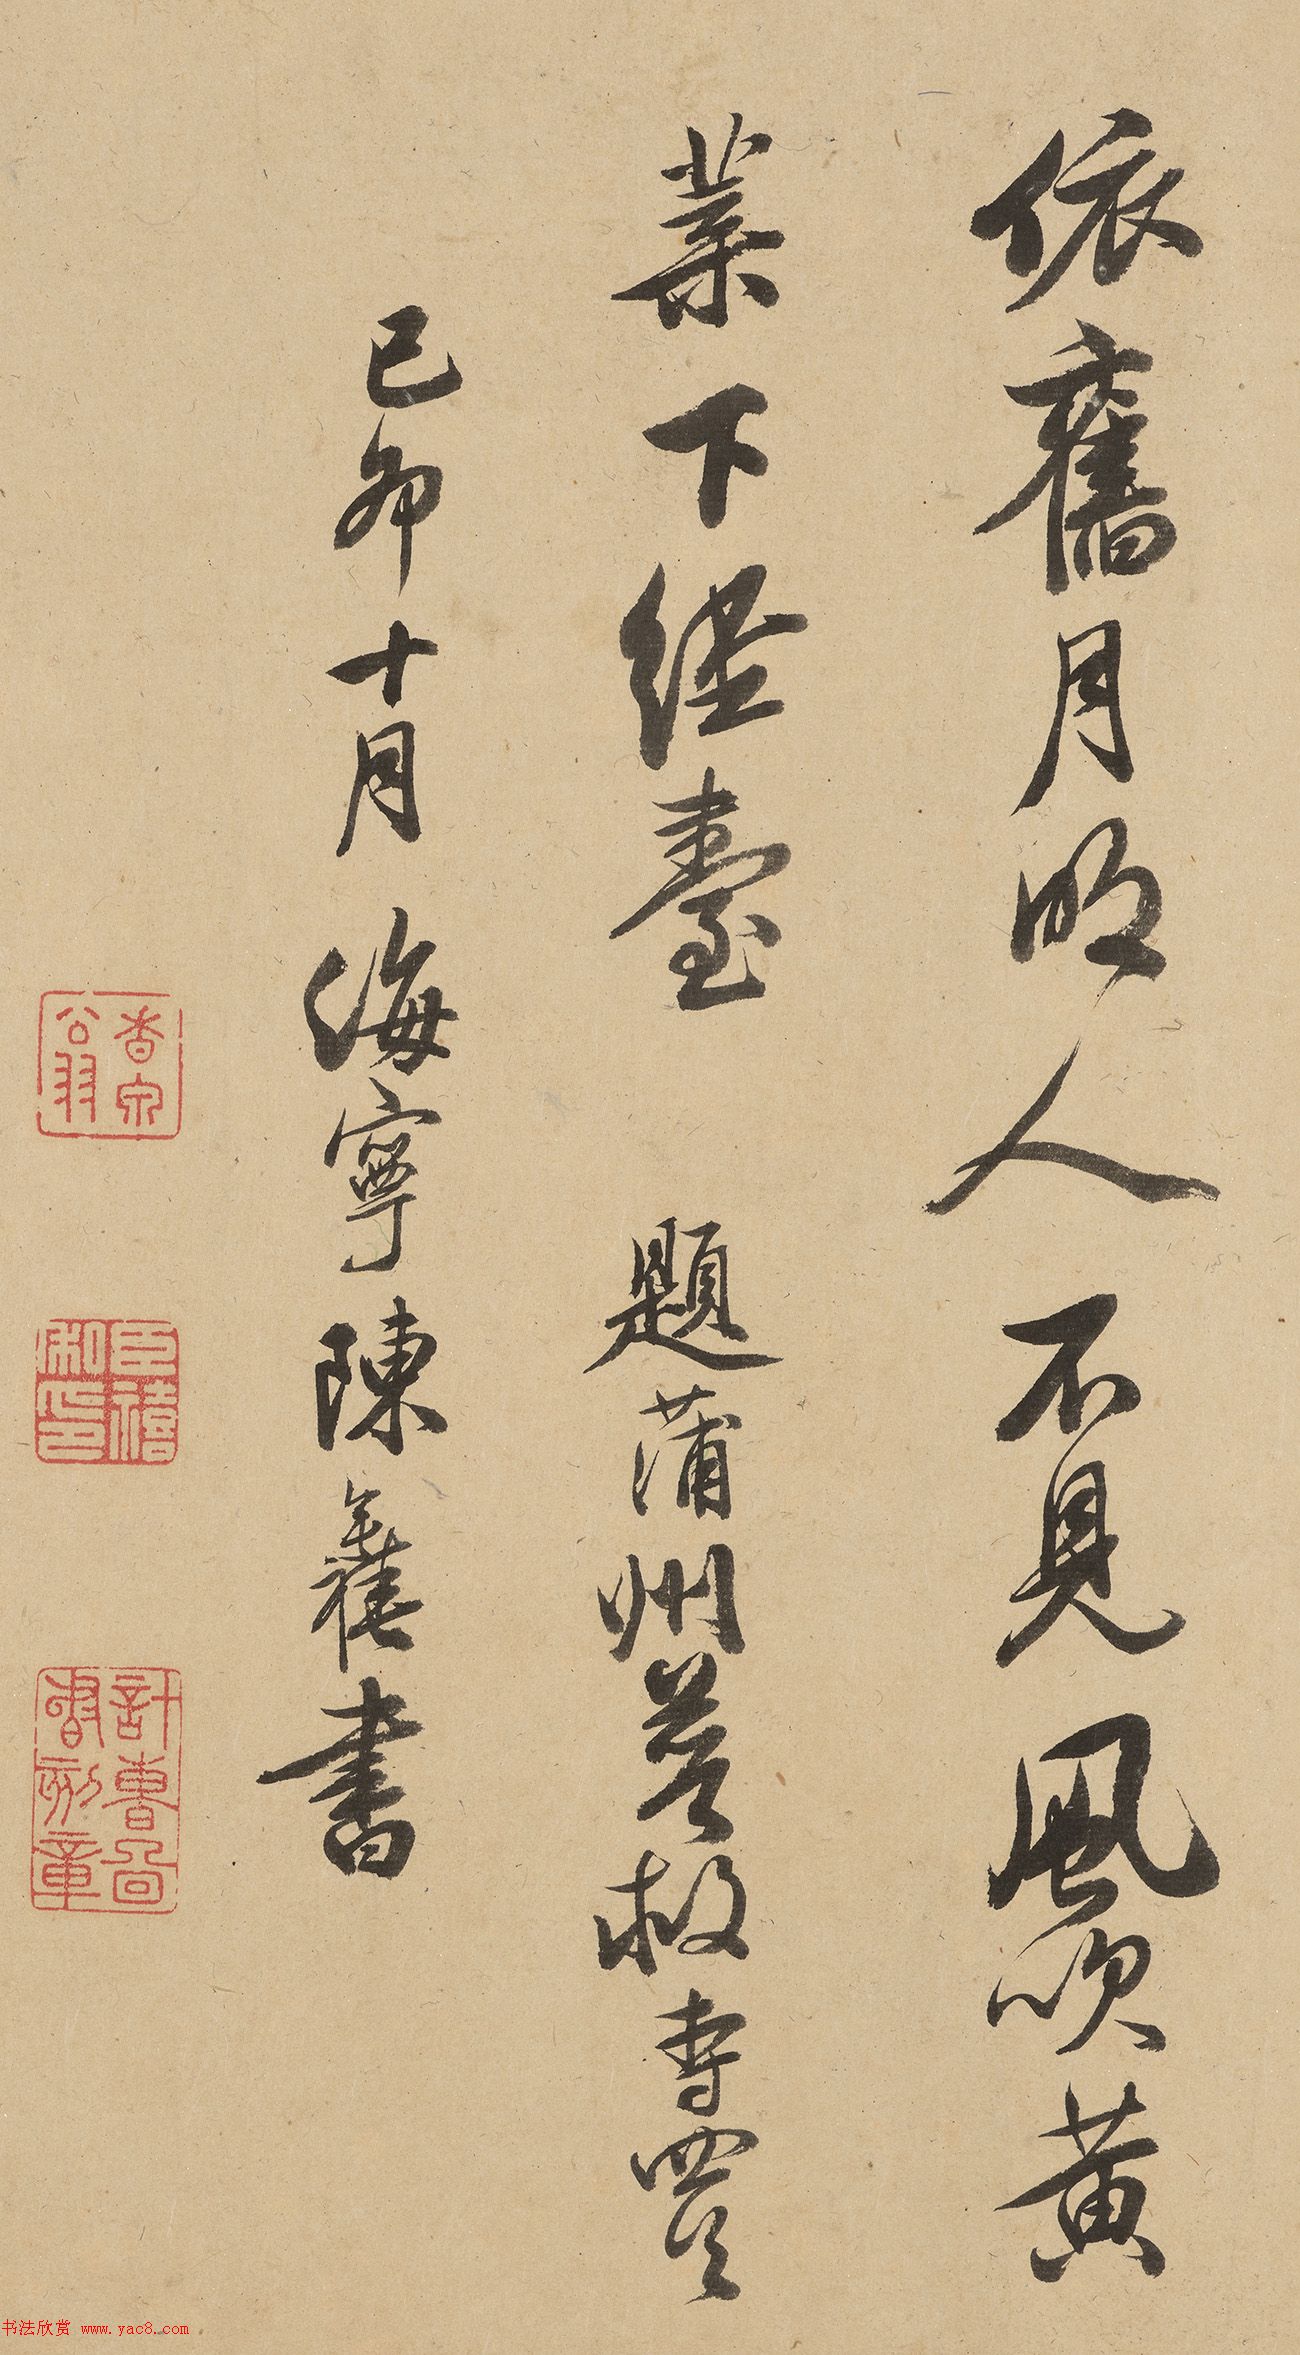 依舊月明人不見風吹黃
葉下經臺 題蒲州普救寺
己卯十月海寧陳奕禧書
香泉翁
臣禧私印
书法欣赏 www.yac8.com